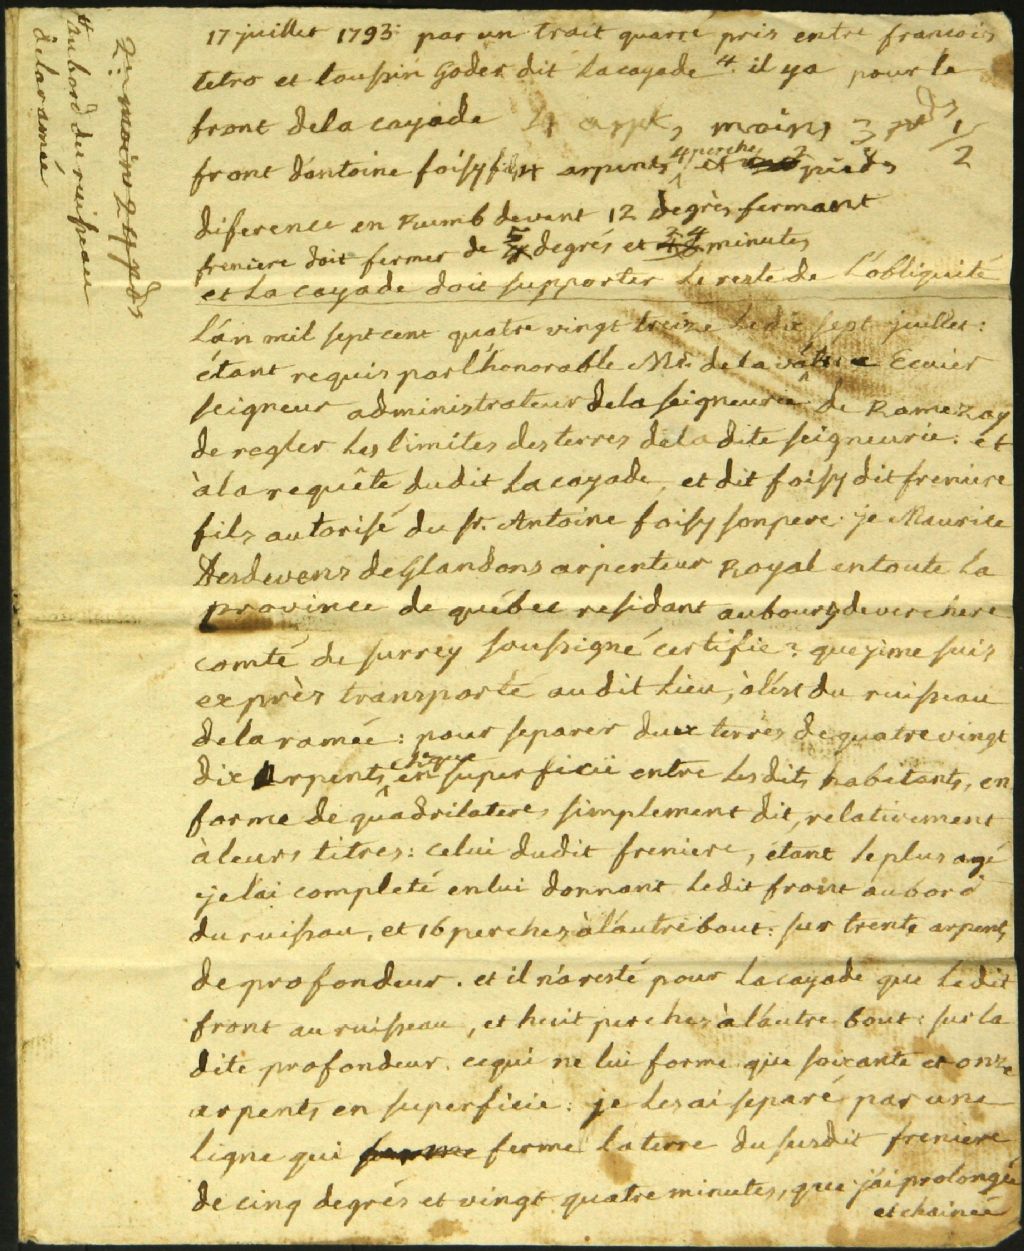 17 juillet 1793: par un trait quarré pris entre francois
tetro et toussin Goder dit Lacayade 4. il y a pour le
front dela cayade 4 arpts, moins 3 pieds 1/2
front d'antoine foisy fils 4 arpents 4 perches et 2 pieds
diference en Rumb devant 12 degrès fermant
freniere doit fermer de 5 degrés et 24 minutes
et La cayade doit supporter Le reste de L'obliquité
L'án mil sept cent quatre vingt treize Le dix sept juillet:
étant requis par l'honorable Mr. de la Ecuier
seigneur administrateur dela seigneurie de Ramezay
de regler Les limites des terres dela dite seigneurie. et
à la requête dudit Lacayade, et dit foisy dit freniere
fils autorisé du Sr. Antoine foisy son pere. je Maurice
Desdevens de Glandons arpenteur Royal en toute La
province de québec residant au bourg de verchere
comté de surrey soussigné certifie? que je me suis
exprès transporté au dit Lieu, à l'ést du ruisseau
dela ramée: pour separer dux terres de quatre vingt
dix arpents en superficie entre Les dits habitants, en
forme de quadrilateres simplement dit, relativement
à leurs titres: celui dudit freniere, étant le plus agé
je l'ai completé en lui donnant Le dit front au bord
du ruisseau, et 16 perches à l'autre bout: sur trente arpents
de profondeur. et il n'a resté pour Lacayade que Le dit
front au ruisseau, et huit perches à l'autre bout: sur la
dite profondeur. ce qui ne lui forme que soixante et onze
arpents en superficie: je Les ai separé par une
ligne qui ferme la terre du susdit freniere
de cinq degrés et vingt quatre minutes, que j'ai prolongée
et chainée
2p. moins 24 pds
au bord du ruisseau
de la ramée